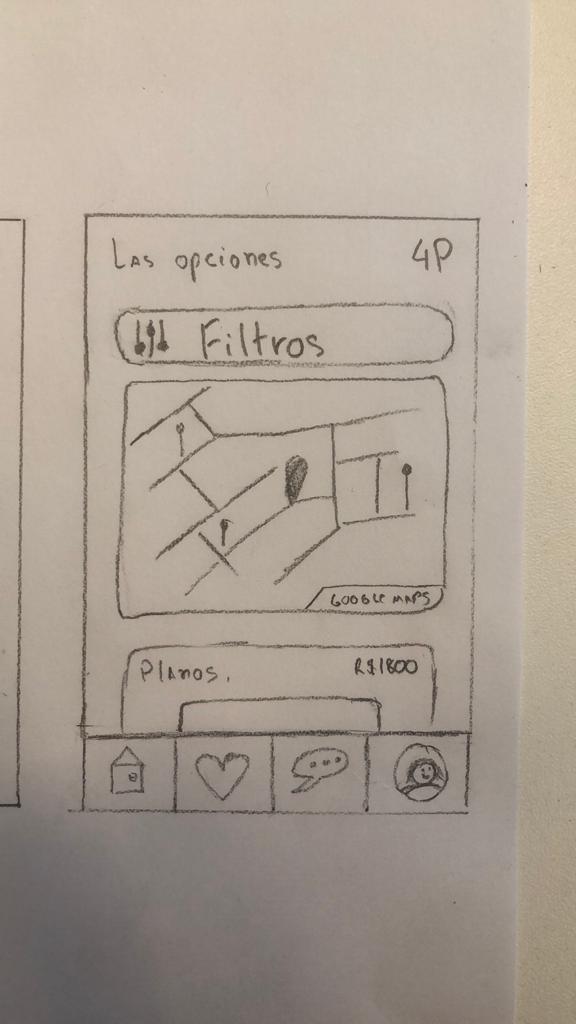 Las opciones 4P
Filtros
GOOGLE MAPS
Planos. R$1800